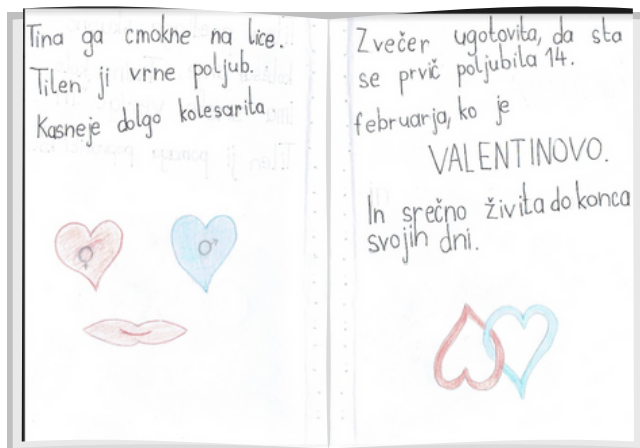 Tina ga cmokne na lice.
Tilen ji vrne poljub.
Kasneje dolgo kolesarita
Zvečer ugotovita, da sta
se prvič poljubila 14.
februarja, ko je
VALENTINOVO.
In srečno živita do konca
svojih dni.